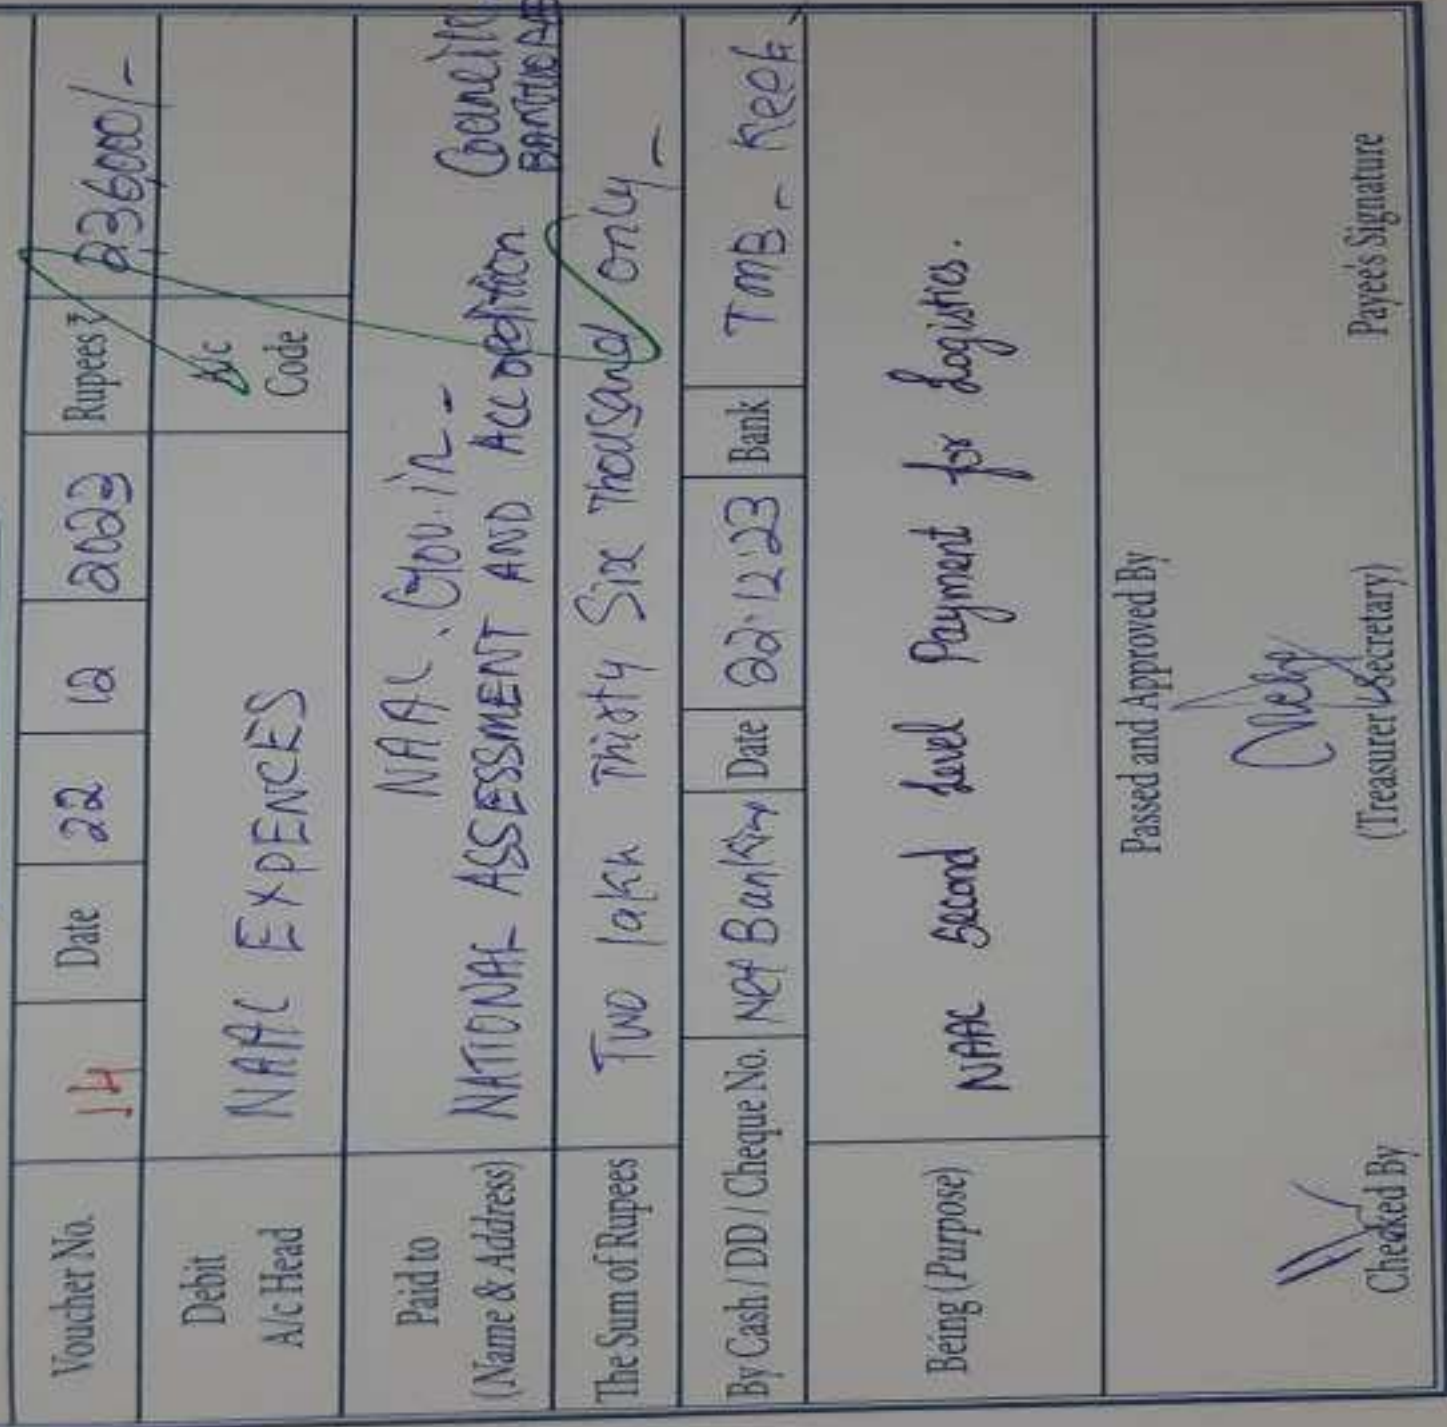 Voucher No. 14 Date 22 12 2023 Rupees ₹ 236000/-
Debit A/c Head NAAC EXPENCES A/c Code
Paid to NAAC.Gov.in -
(Name & Address) NATIONAL ASSESSMENT AND Accredition Council
The Sum of Rupees Two lakh Thirty Six Thousand only -
By Cash / DD / Cheque No. Net Banking Date 22.12.23 Bank TMB -
Being (Purpose) NAAC Second Level Payment for Logistics.
Passed and Approved By
Checked By (Treasurer / Secretary) Payee's Signature